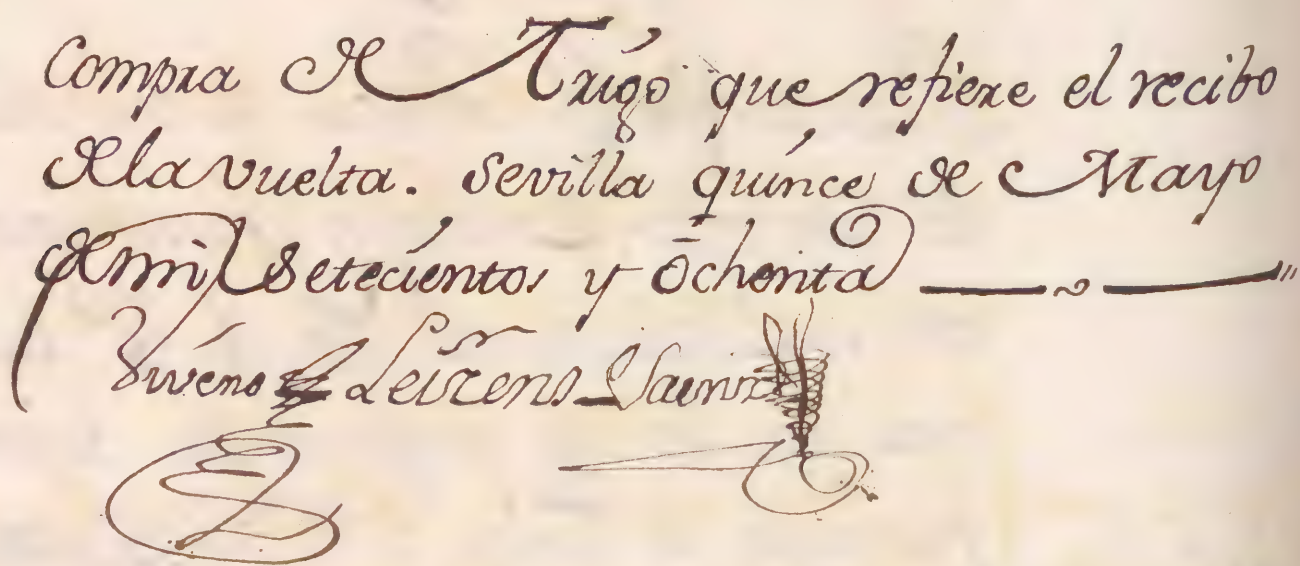 Compra de Trigo que refiere el recibo
de la vuelta. Sevilla quince de Mayo
de mil Setecientos y Ochenta